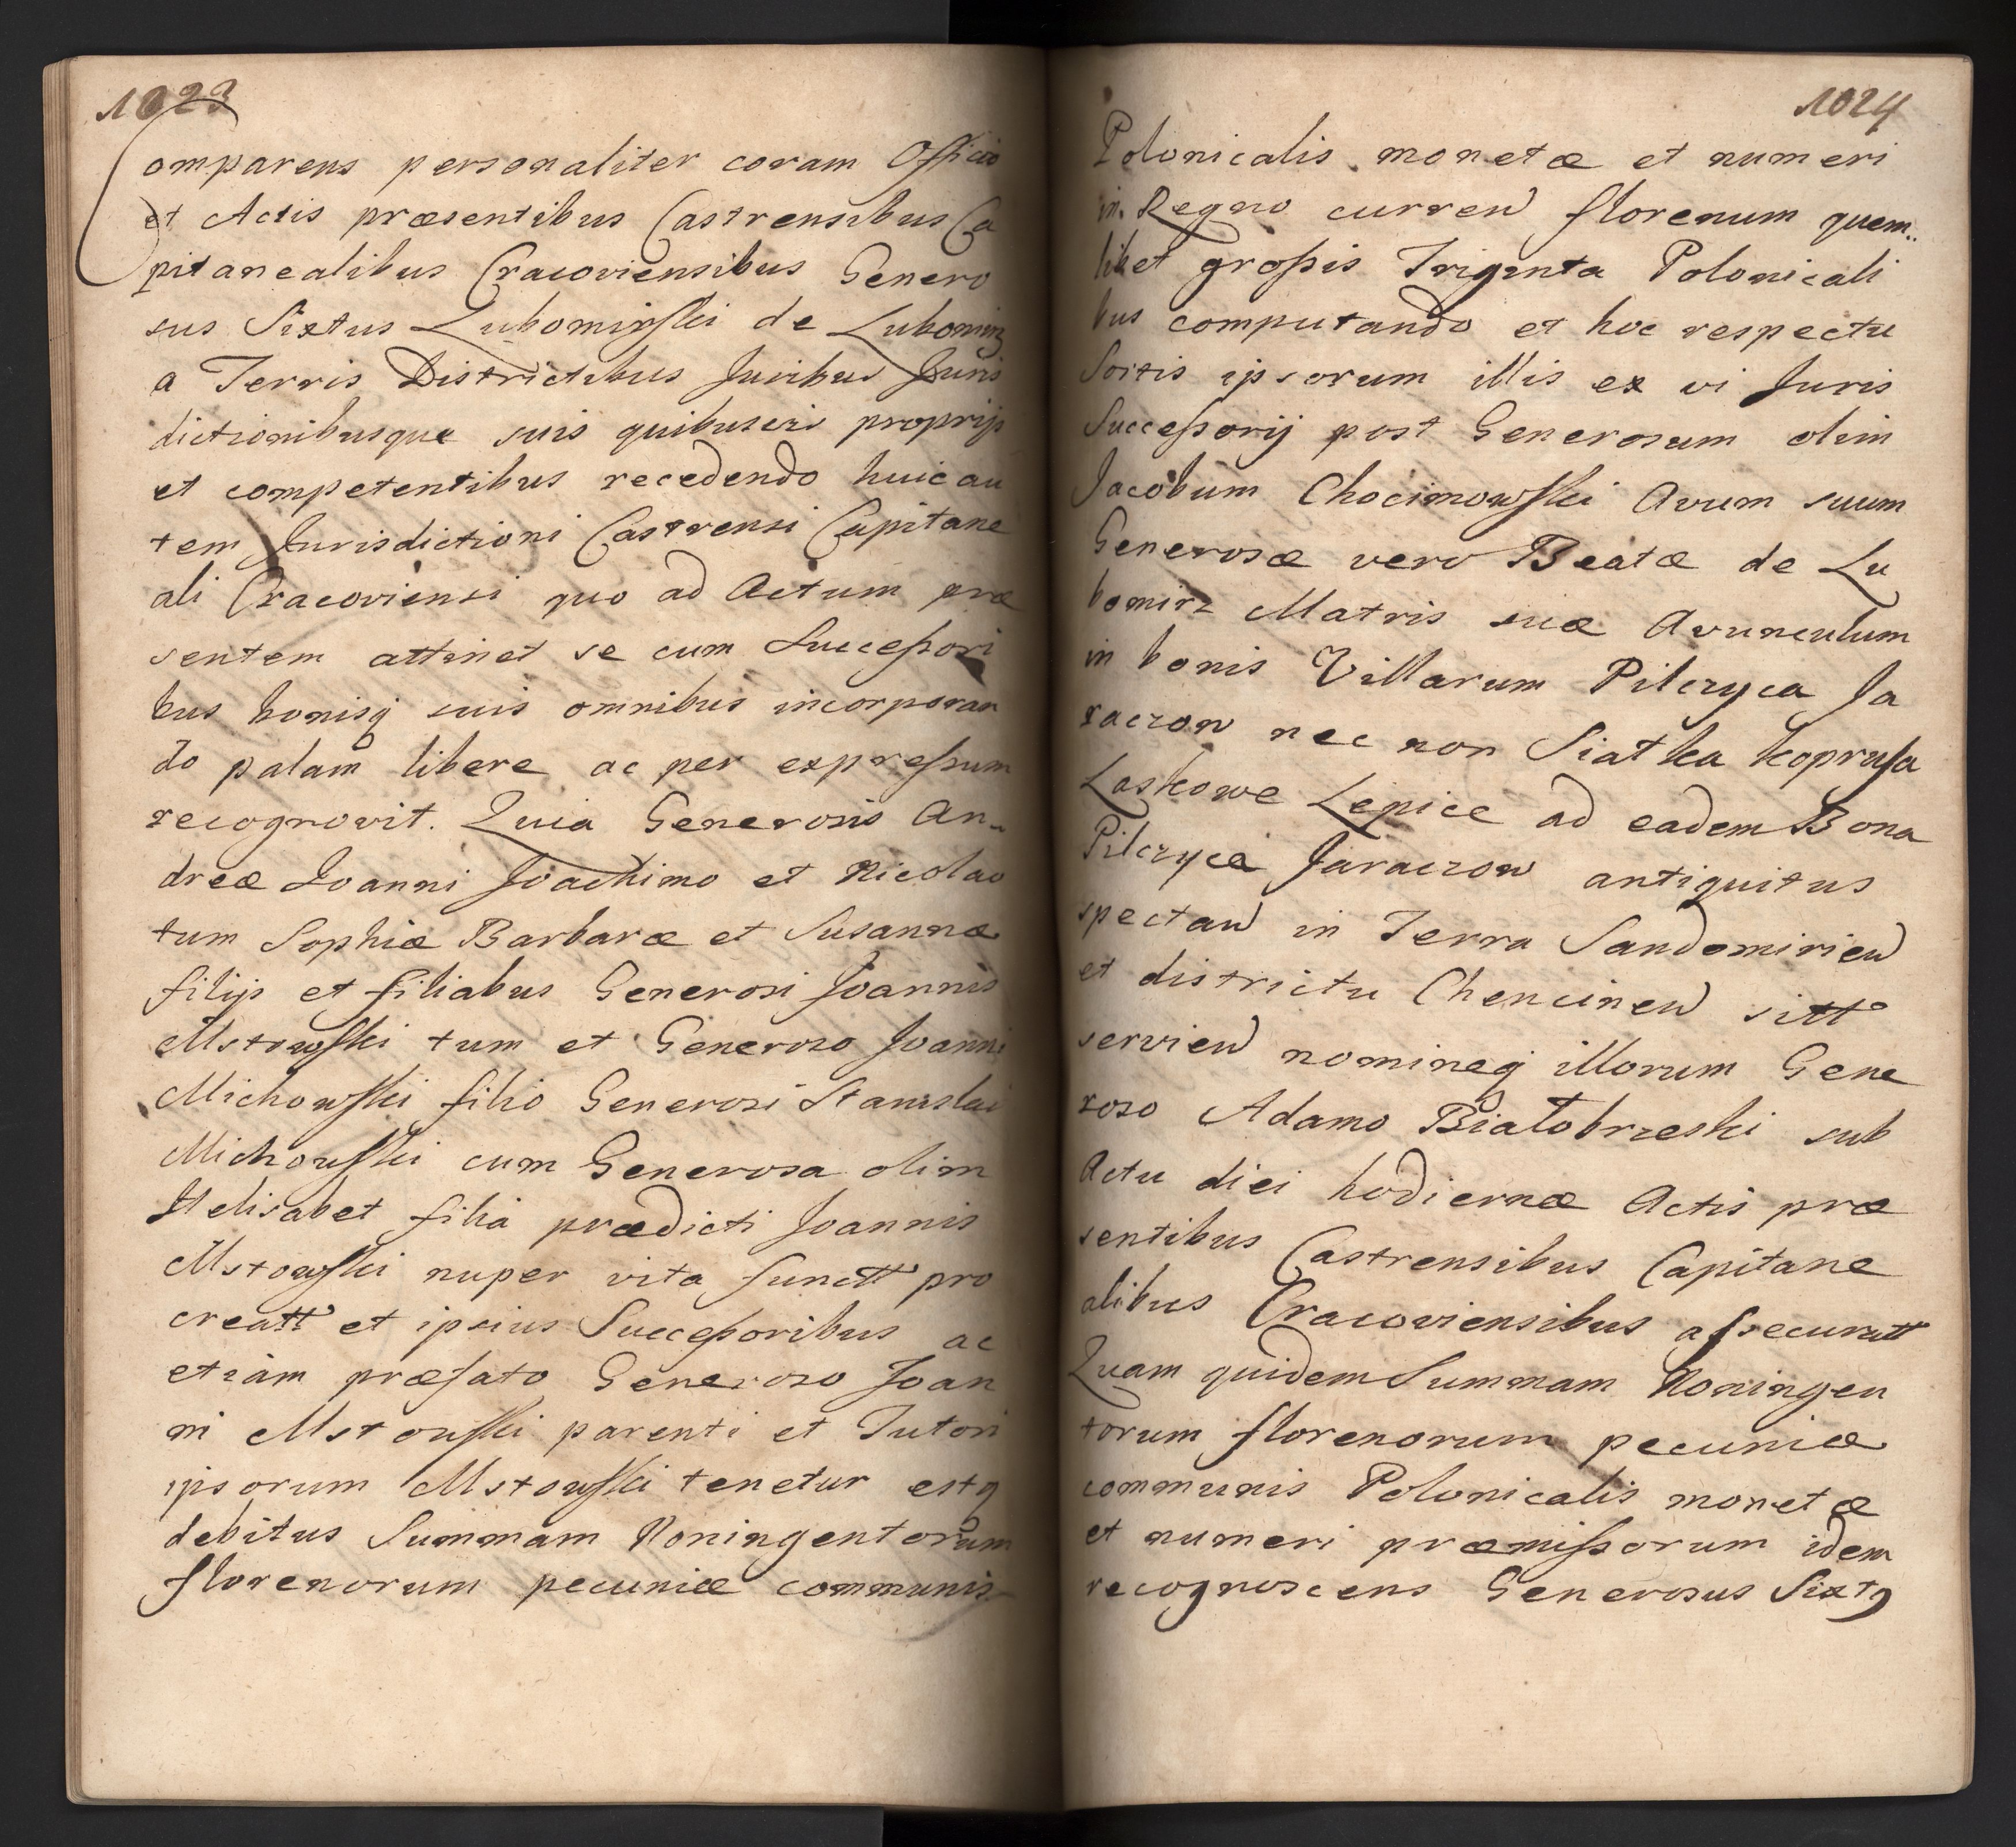 1023
Comparens personaliter coram Officio
et Actis præsentibus Castrensibus Ca
pitanealibus Cracoviensibus Genero
sus Sixtus Lubomirski de Lubomirz
a Terris Districtibus Juribus Juris
dictionibusque suis quibusvis proprijs
et competentibus recedendo huic au
tem Jurisdictioni Castrensi Capitane
ali Cracoviensi quo ad Actum præ
sentem attinet se cum Successori
bus bonisq suis omnibus incorporan
do palam libere ac per expressum
recognovit. Quia Generosis An-
dreæ Joanni Joachimo et Nicolao
tum Sophiæ Barbaræ et Susannæ
filijs et filiabus Generosi Joannis
Mstowski tum et Generoso Joanni
Michowski filio Generosi Stanislai
Michowski cum Generosa olim
Helisabet filia prædicti Joannis
Mstowski nuper vita functt pro
creatt et ipsius Successoribus ac
etiam præfato Generoso Joan
ni Mstowski parenti et Tutori
ipsorum Mstowski tenetur estq
debitus Summam Noningentorum
florenorum pecuniæ communis
1024
Polonicalis monetæ et numeri
in Regno curren florenum quem..
libet grossis Triginta Polonicali
bus computando et hoc respectu
Sortis ipsorum illis ex vi Juris
Successorij post Generosum olim
Jacobum Chocimowski Avum suum
Generosæ vero Beatæ de Lu
bomirz Matris suæ Avunculum
in bonis Villarum Pilczyca Ja
raczow nec non Siatka koprusa
Laskowe Lepice ad eadem Bona
Pilczyca Jaraczow antiquitus
spectan in Terra Sandomirien
et districtu Chencinen sitt
servien nomineq illorum Gene
roso Adamo Białobrzeski sub
Actu diei hodiernæ Actis præ
sentibus Castrensibus Capitane
alibus Cracoviensibus assecuratt
Quam quidem Summam Noningen
torum florenorum pecuniæ
communis Polonicalis monetæ
et numeri præmissorum idem
recognoscens Generosus Sixtq